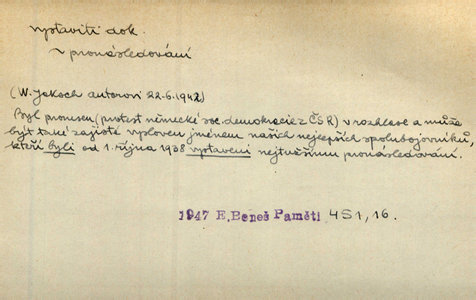 vystaviti dok.
~ pronásledování
(W. Jaksch autorovi 22.6.1942)
Byl pronesen (protest německé soc. demokracie z ČSR) v rozhlase a může
být také zajisté vysloven jménem našich nejlepších spolubojovníků,
kteří byli od 1. října 1938 vystaveni nejtužšímu pronásledování.
1947 E. Beneš Paměti 451, 16.